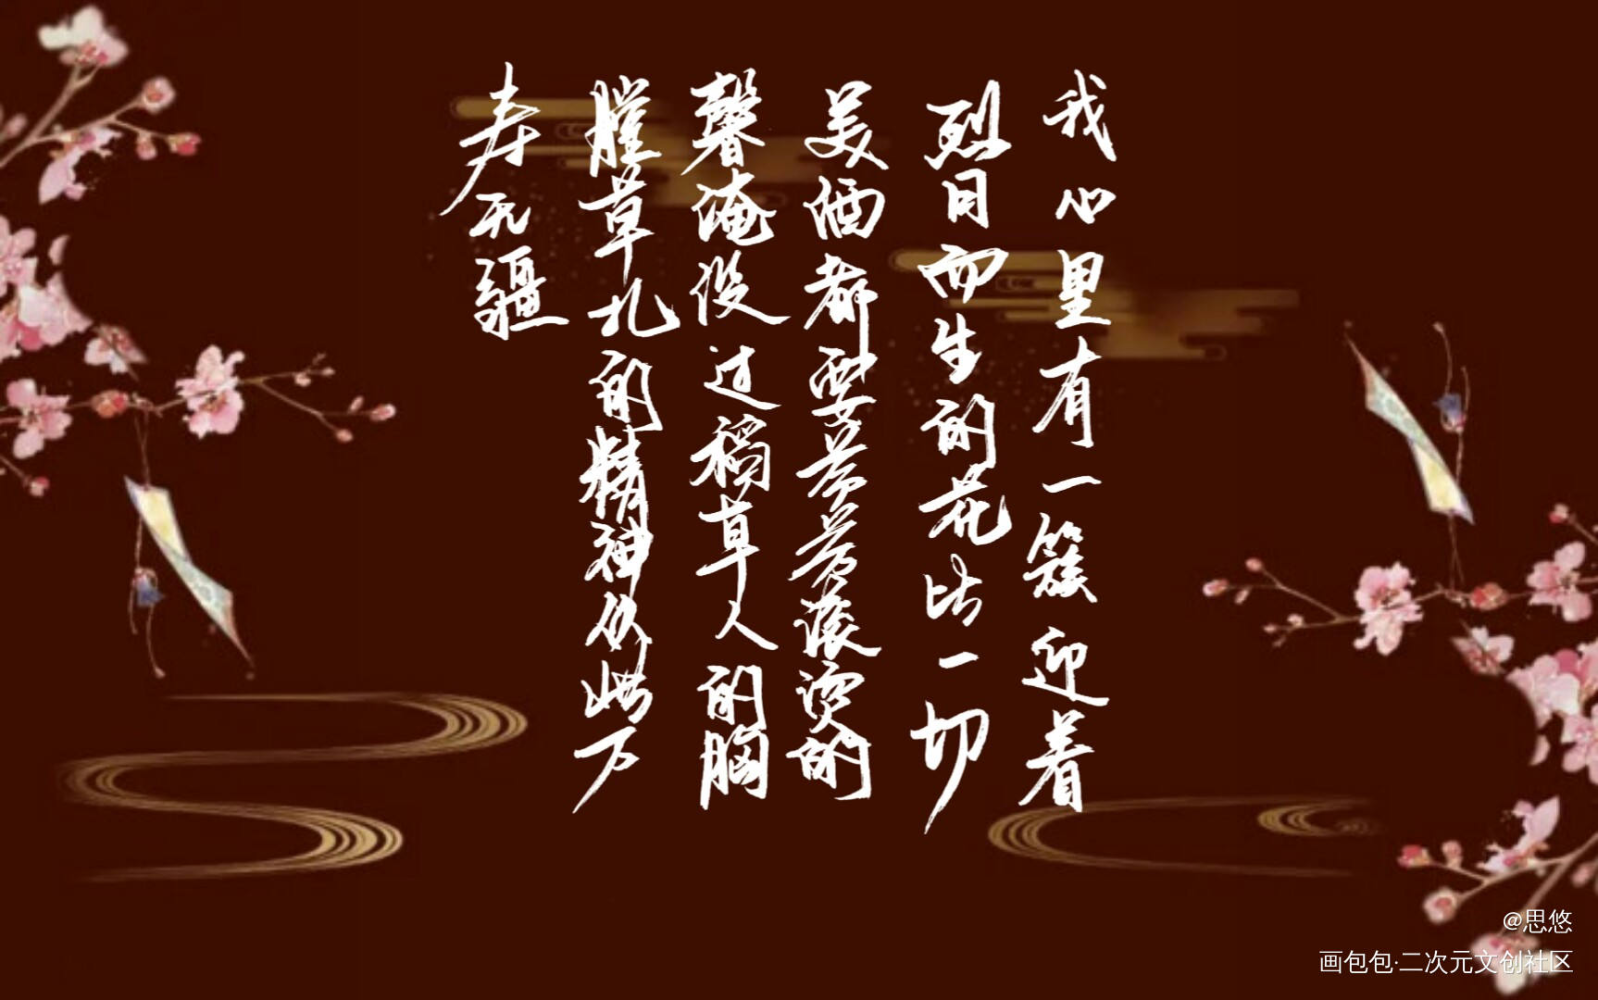 我心里有一簇迎着
烈日而生的花比一切
美酒都要芬芳滚烫的
馨淹没过稻草人的胸
膛草扎的精神从此万
寿无疆
@思悠
画包包·二次元文创社区